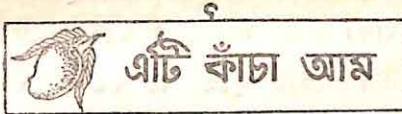 এটি কাঁচা আম